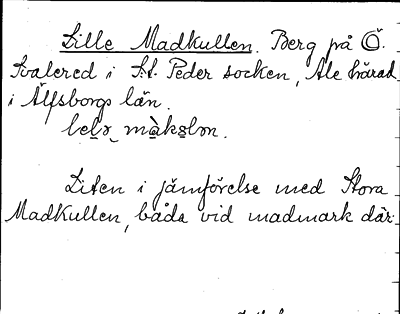 Lille Madkullen. Berg på Ö.
Svalered i St. Peder socken, Ale härad
i Älfsborgs län.
Liten i jämförelse med Stora
Madkullen, båda vid madmark där